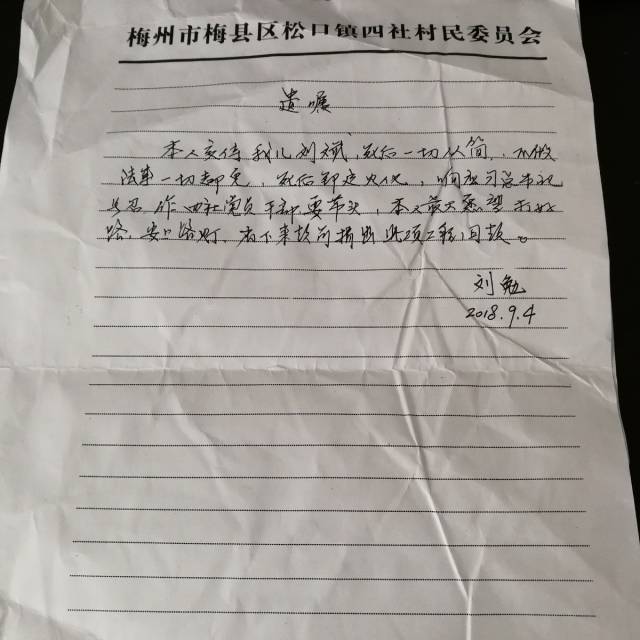 梅州市梅县区松口镇四社村民委员会
遗嘱
本人交待我儿刘斌,死后一切从简,不做
法事一切都免,死后即送火化,响应习总书记
号召作四社党员干部要带头,本人最大愿望打好
路,安路灯,有下来款可捐出此项工程回款。
刘勉
2018.9.4